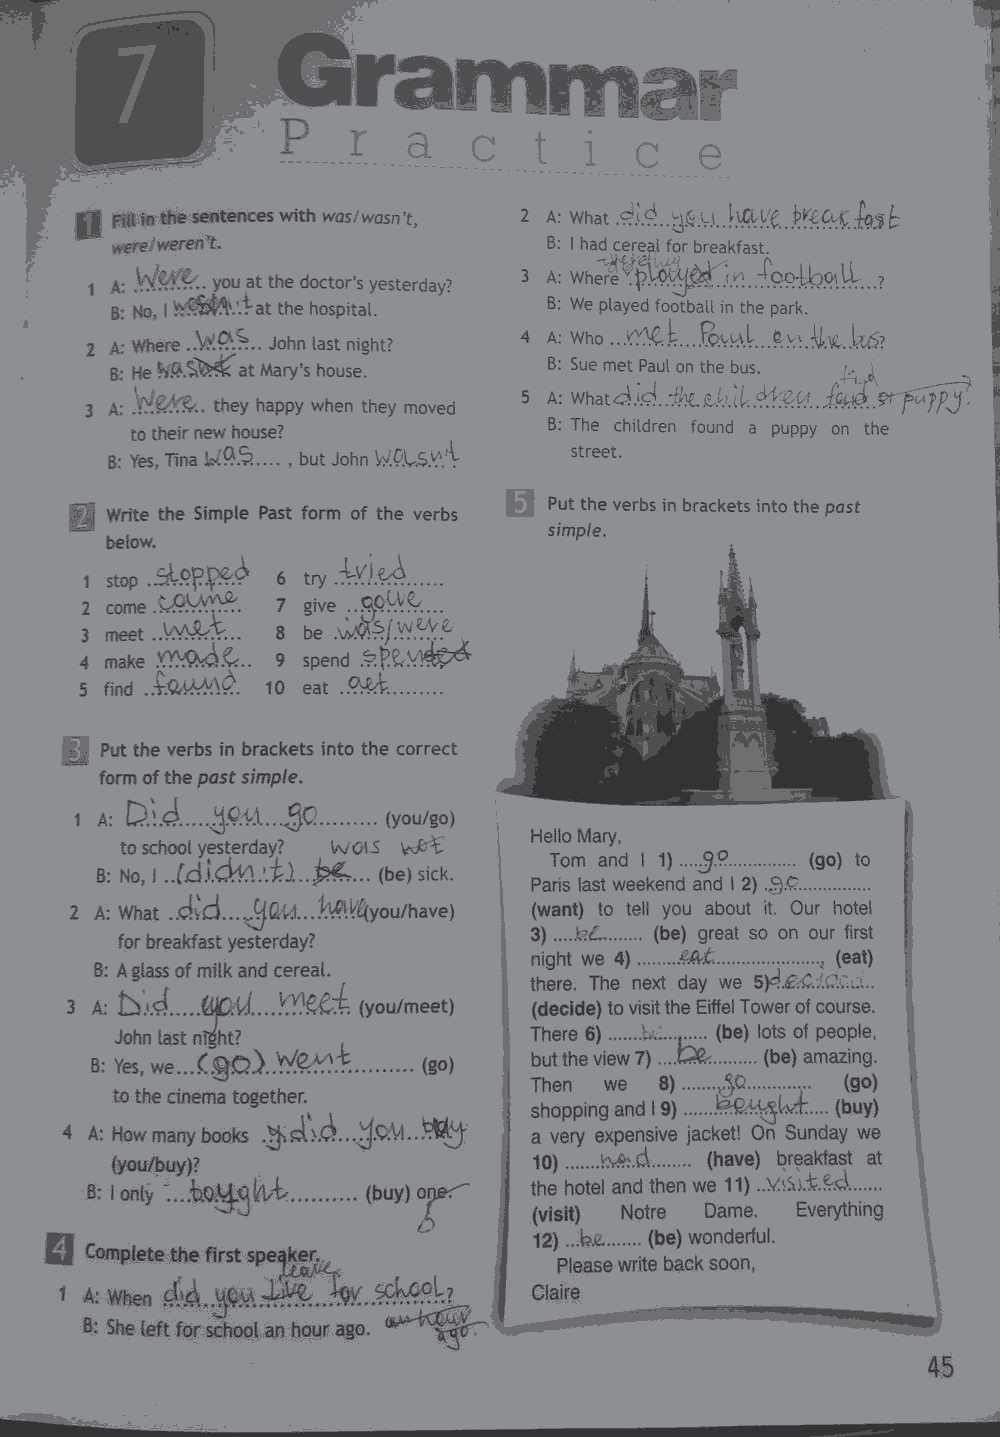 7
Grammar
Practice
1 Fill in the sentences with was/wasn't,
were/weren't.
1 A: Were you at the doctor's yesterday?
B: No, I wasn't at the hospital.
2 A: Where was John last night?
B: He wasn't at Mary's house.
3 A: Were they happy when they moved
to their new house?
B: Yes, Tina was , but John wasn't
2 Write the Simple Past form of the verbs
below.
1 stop stopped 6 try tried
2 come came 7 give gave
3 meet met 8 be was/were
4 make made 9 spend spended
5 find found 10 eat aet
3 Put the verbs in brackets into the correct
form of the past simple.
1 A: Did you go (you/go)
to school yesterday? was not
B: No, I (didn't) be (be) sick.
2 A: What did you have (you/have)
for breakfast yesterday?
B: A glass of milk and cereal.
3 A: Did you meet (you/meet)
John last night?
B: Yes, we (go) went (go)
to the cinema together.
4 A: How many books did you buy
(you/buy)?
B: I only boyght (buy) one.
4 Complete the first speaker.
leave
1 A: When did you live for school?
B: She left for school an hour ago. an hour
ago.
2 A: What did you have breakfast
B: I had cereal for breakfast.
3 A: Where played in football ?
B: We played football in the park.
4 A: Who met Paul on the bus?
B: Sue met Paul on the bus.
find
5 A: What did the children puppy?
B: The children found a puppy on the
street.
5 Put the verbs in brackets into the past
simple.
Hello Mary,
Tom and I 1) go (go) to
Paris last weekend and I 2) go
(want) to tell you about it. Our hotel
3) be (be) great so on our first
night we 4) eat , (eat)
there. The next day we 5) decided
(decide) to visit the Eiffel Tower of course.
There 6) be (be) lots of people,
but the view 7) be (be) amazing.
Then we 8) go (go)
shopping and I 9) bought (buy)
a very expensive jacket! On Sunday we
10) had (have) breakfast at
the hotel and then we 11) visited
(visit) Notre Dame. Everything
12) be (be) wonderful.
Please write back soon,
Claire
45